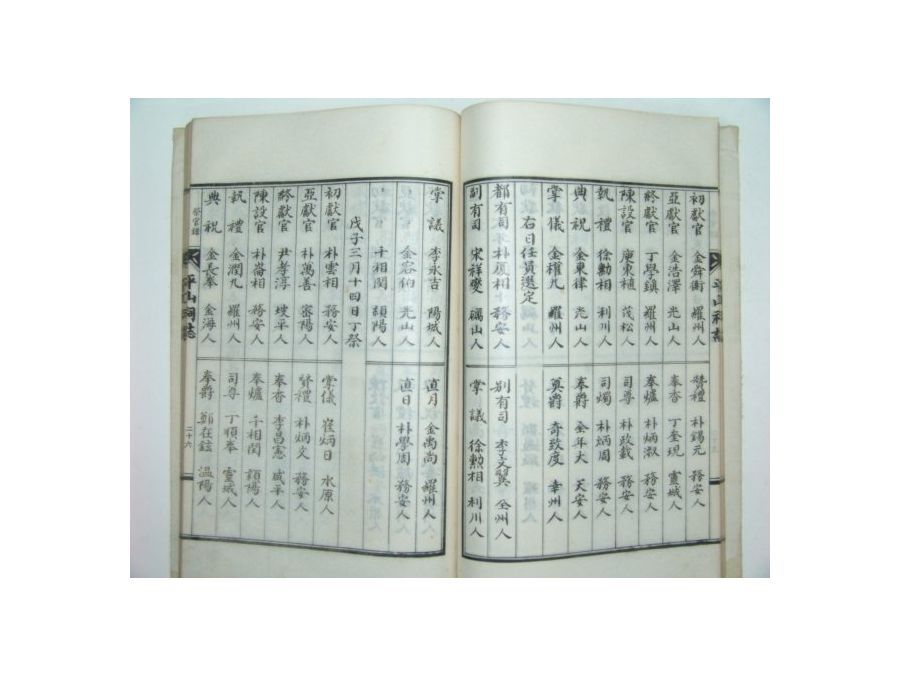 初獻官 金錚衡 羅州人
亞獻官 金浩澤 光山人
終獻官 丁學鎮 靈城人
陳設官 庾東植 茂松人
執禮 徐勳相 利川人
典祝 金東律 光山人
掌儀 金權九 羅州人
右日任員選定
都有司 朴厦相 務安人
副有司 宋祥燮 礪山人
贊禮 朴錫元 務安人
奉香 丁奎現 靈城人
奉爐 朴炳淑 務安人
司尊 朴政載 務安人
司燭 朴炳周 務安人
奉爵 全年大 天安人
奠爵 奇致度 幸州人
別有司 李文翼 全州人
掌議 徐勳相 利川人
掌議 李永吉 陽城人
金容伯 光山人
千相閏 潁陽人
戊子三月十四日丁祭
初獻官 朴雲相 務安人
亞獻官 朴萬善 密陽人
終獻官 尹孝淳 坡平人
陳設官 朴崙相 務安人
執禮 金潤九 羅州人
典祝 金長奉 金海人
直月 金禹尚 羅州人
直日 朴學周 務安人
掌儀 崔炳日 水原人
贊禮 朴炳文 務安人
奉香 李昌憲 咸平人
奉爐 千相閏 潁陽人
司尊 丁順奉 靈城人
奉爵 鄭在鉉 溫陽人
祭官錄
平山祠誌
二十六
平山祠誌